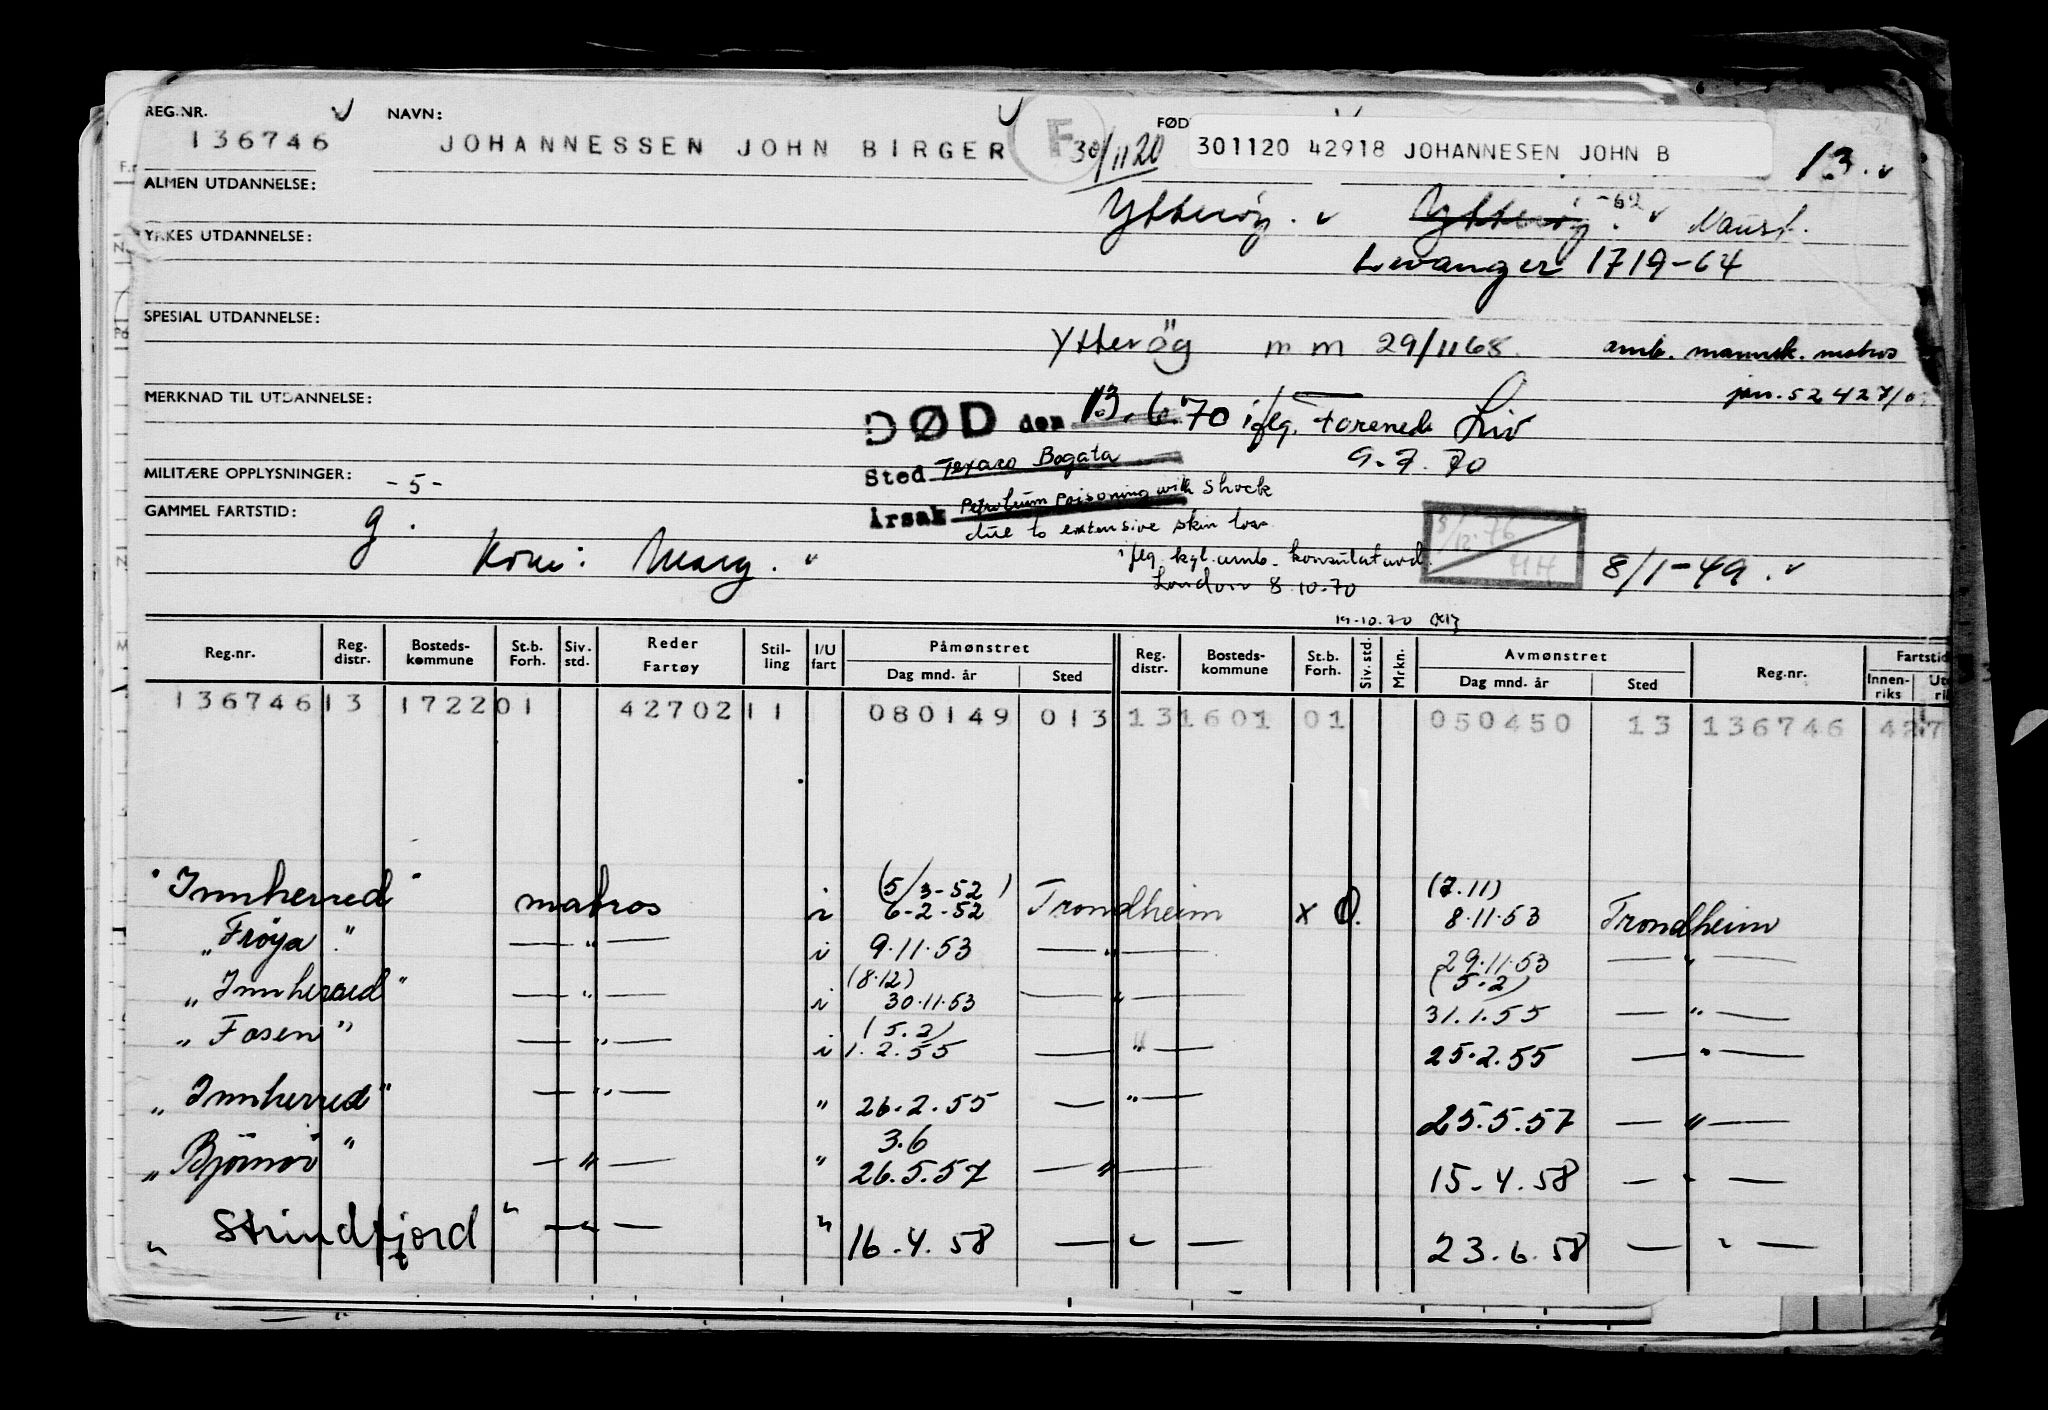 REG.NR. NAVN: FØD
136746 JOHANNESSEN JOHN BIRGER F 30/11 20 301120 42918 JOHANNESEN JOHN B 13.
ALMEN UTDANNELSE:
Ytterøy. Ytterøy. -62
YRKES UTDANNELSE:
Levanger 1719-64
SPESIAL UTDANNELSE:
Ytterøy m m 29/11 68. amb. mannsk. matros
MERKNAD TIL UTDANNELSE:
DØD den 13.6.70 iflg. Forenede Liv
9.7.70
Sted Texaco Bogata
MILITÆRE OPPLYSNINGER: -5-
Årsak Petroleum Poisoning with Shock
due to extensive skin loss
GAMMEL FARTSTID: g.
Kone: Marg.
iflg. kgl. amb. konsulatavd.
London 8.10.70
8/1-49.
19-10.70
Reg.nr. Reg. distr. Bosteds- kommune St.b. Forh. Siv. std. Reder Fartøy Stil- ling I/U fart Påmønstret Reg. distr. Bosteds- kommune St.b. Forh. Siv. std. Mrkn. Avmønstret Reg.nr. Fartstid
Dag mnd. år Sted Dag mnd. år Sted Innen- riks
136746 13 1722 01 42702 11 080149 013 13 1601 01 050450 13 136746 427
(5/3-52) (7.11)
"Innherred" matros i 6-2-52 Trondheim x 8.11.53 Trondheim
"Frøya" — " — i 9.11.53 — " — 29.11.53 — " —
(8.12) (5.2)
"Innherred" — " — i 30.11.53 — " — 31.1.55 — " —
(5.2)
"Fosen" — " — i 1.2.55 — " — 25.2.55 — " —
"Innherred" — " — " 26.2.55 — " — 25.5.57 — " —
3.6
"Björnör" — " — " 26.5.57 — " — 15.4.58 — " —
"Strindfjord" — " — " 16.4.58 — " — 23.6.58 — " —